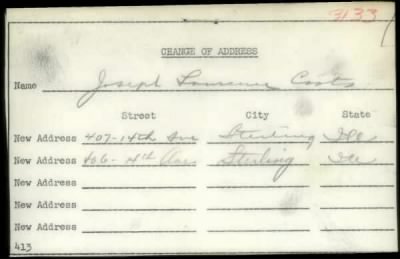 3133
CHANGE OF ADDRESS
Name Joseph Lawrence Coats
Street City State
New Address 407-14th Ave Sterling Ill
New Address 406-14th Ave Sterling Ill
New Address
New Address
New Address
413